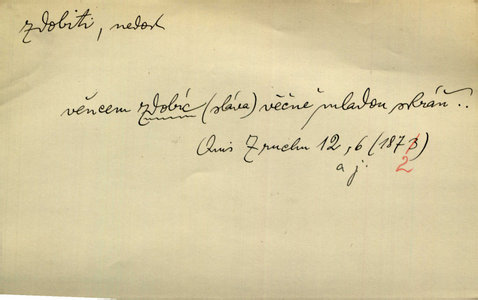 zdobiti, nedok
věncem zdobíc (sláva) věčně mladou skráň..
Quis Z ruchu 12, 6 (1873)
a j. 2